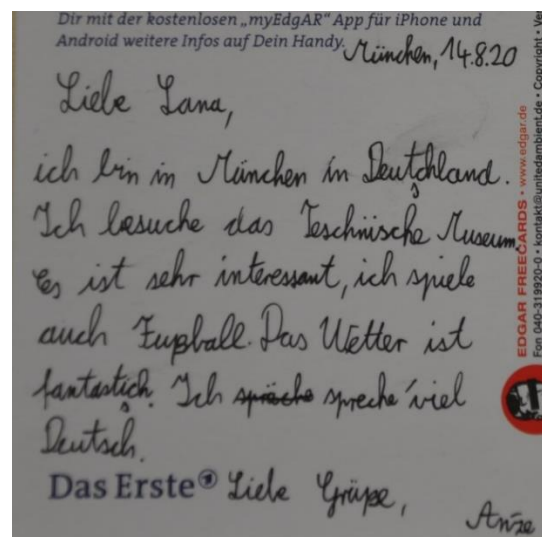 Dir mit der kostenlosen „myEdgAR" App für iPhone und
Android weitere Infos auf Dein Handy.
München, 14.8.20
Liebe Lana,
ich bin in München in Deutschland.
Ich besuche das Teschnische Museum.
Es ist sehr interessant, ich spiele
auch Fußball. Das Wetter ist
fantastisch. Ich spreche viel
Deutsch.
Das Erste
Liebe Grüße,
Anže
EDGAR FREECARDS • www.edgar.de
Fon 040-319920-0 • kontakt@unitedambient.de • Copyright •